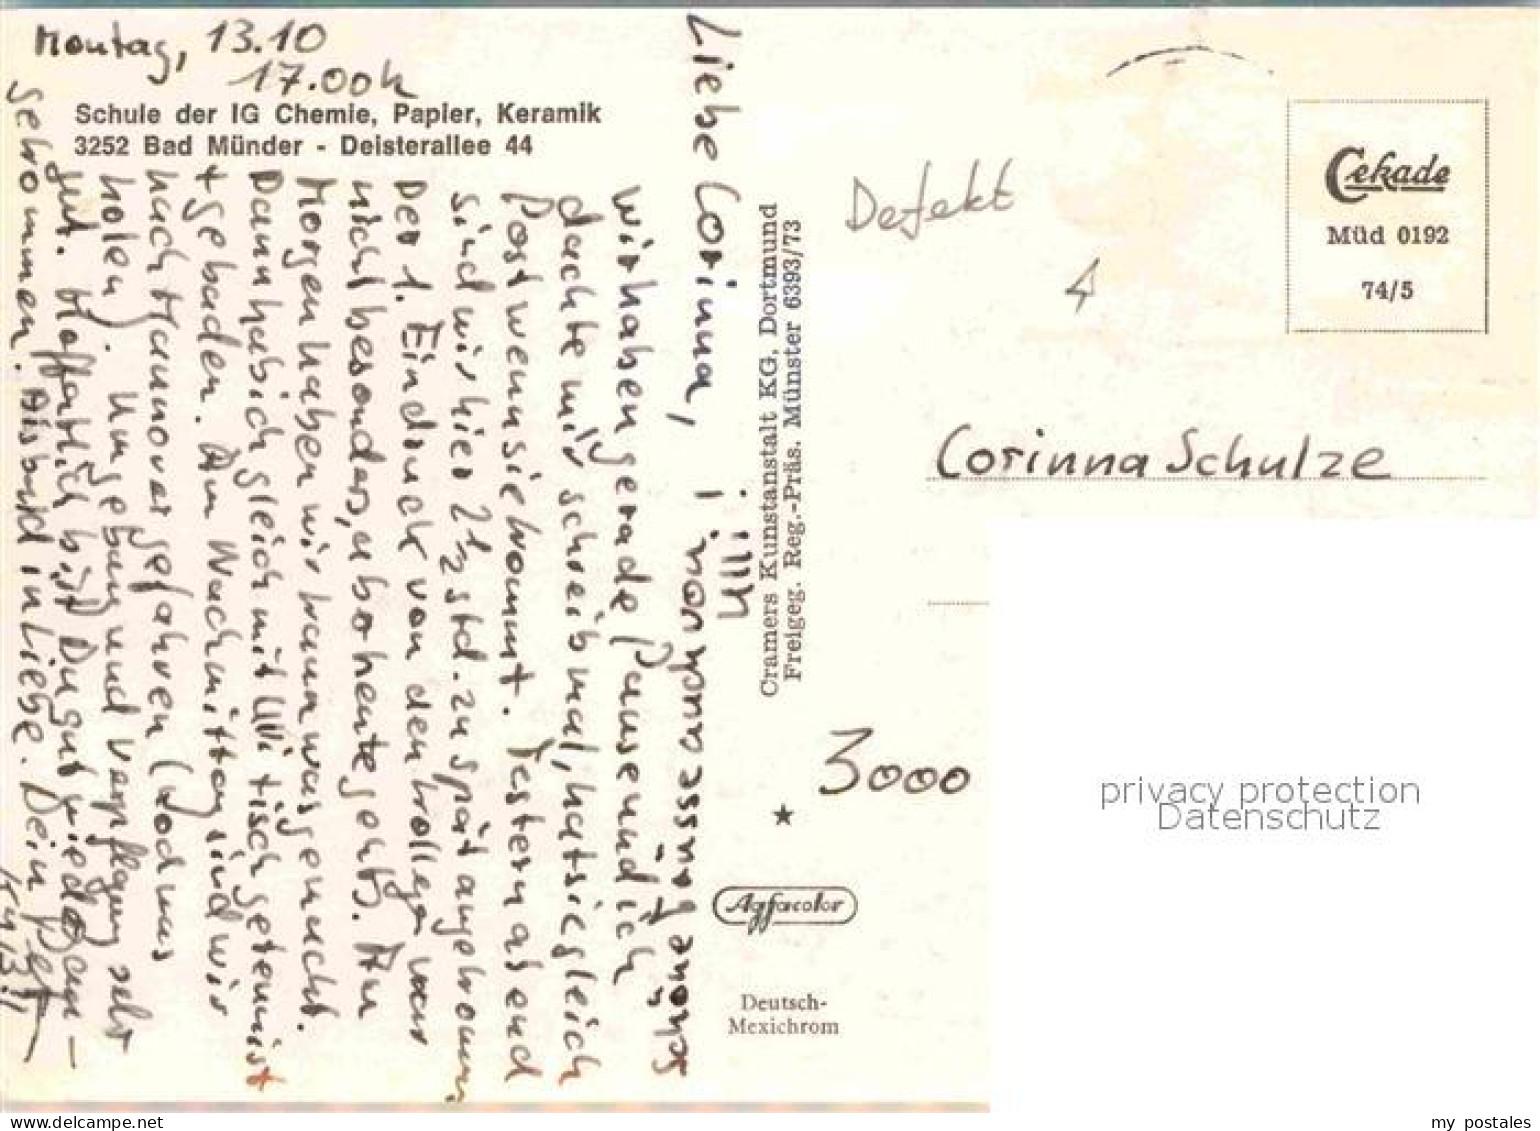 Montag, 13.10
17.00h
Schule der IG Chemie, Papier, Keramik
3252 Bad Münder - Deisterallee 44
Liebe Corinna,
wir haben gerade Pause und ich
dachte mir schreib mal, hat sie gleich
Post wenn sie kommt. Gestern abend
sind wir hier 2½ std. zu spät angekommen
Der 1. Eindruck von den kollegen war
nicht besonders, aber heute gehts. Am
Morgen haben wir kram was gemacht.
Dann hab ich gleich mit Uli tischgetennist
+ gebaden. Am Nachmittag sind wir
nach Hannover gefahren (
holen). Umgebung und verpflegung sehr
gut. Hoffentlich bist Du gut wieder Heim-
gekommen. Bis bald in Liebe. Dein
Cramers Kunstanstalt KG, Dortmund
Freigeg. Reg.-Präs. Münster 6393/73
Agfacolor
Deutsch-
Mexichrom
Defekt
4
Cekade
Müd 0192
74/5
Corinna Schulze
3000
privacy protection
Datenschutz
www.delcampe.net
my_postales